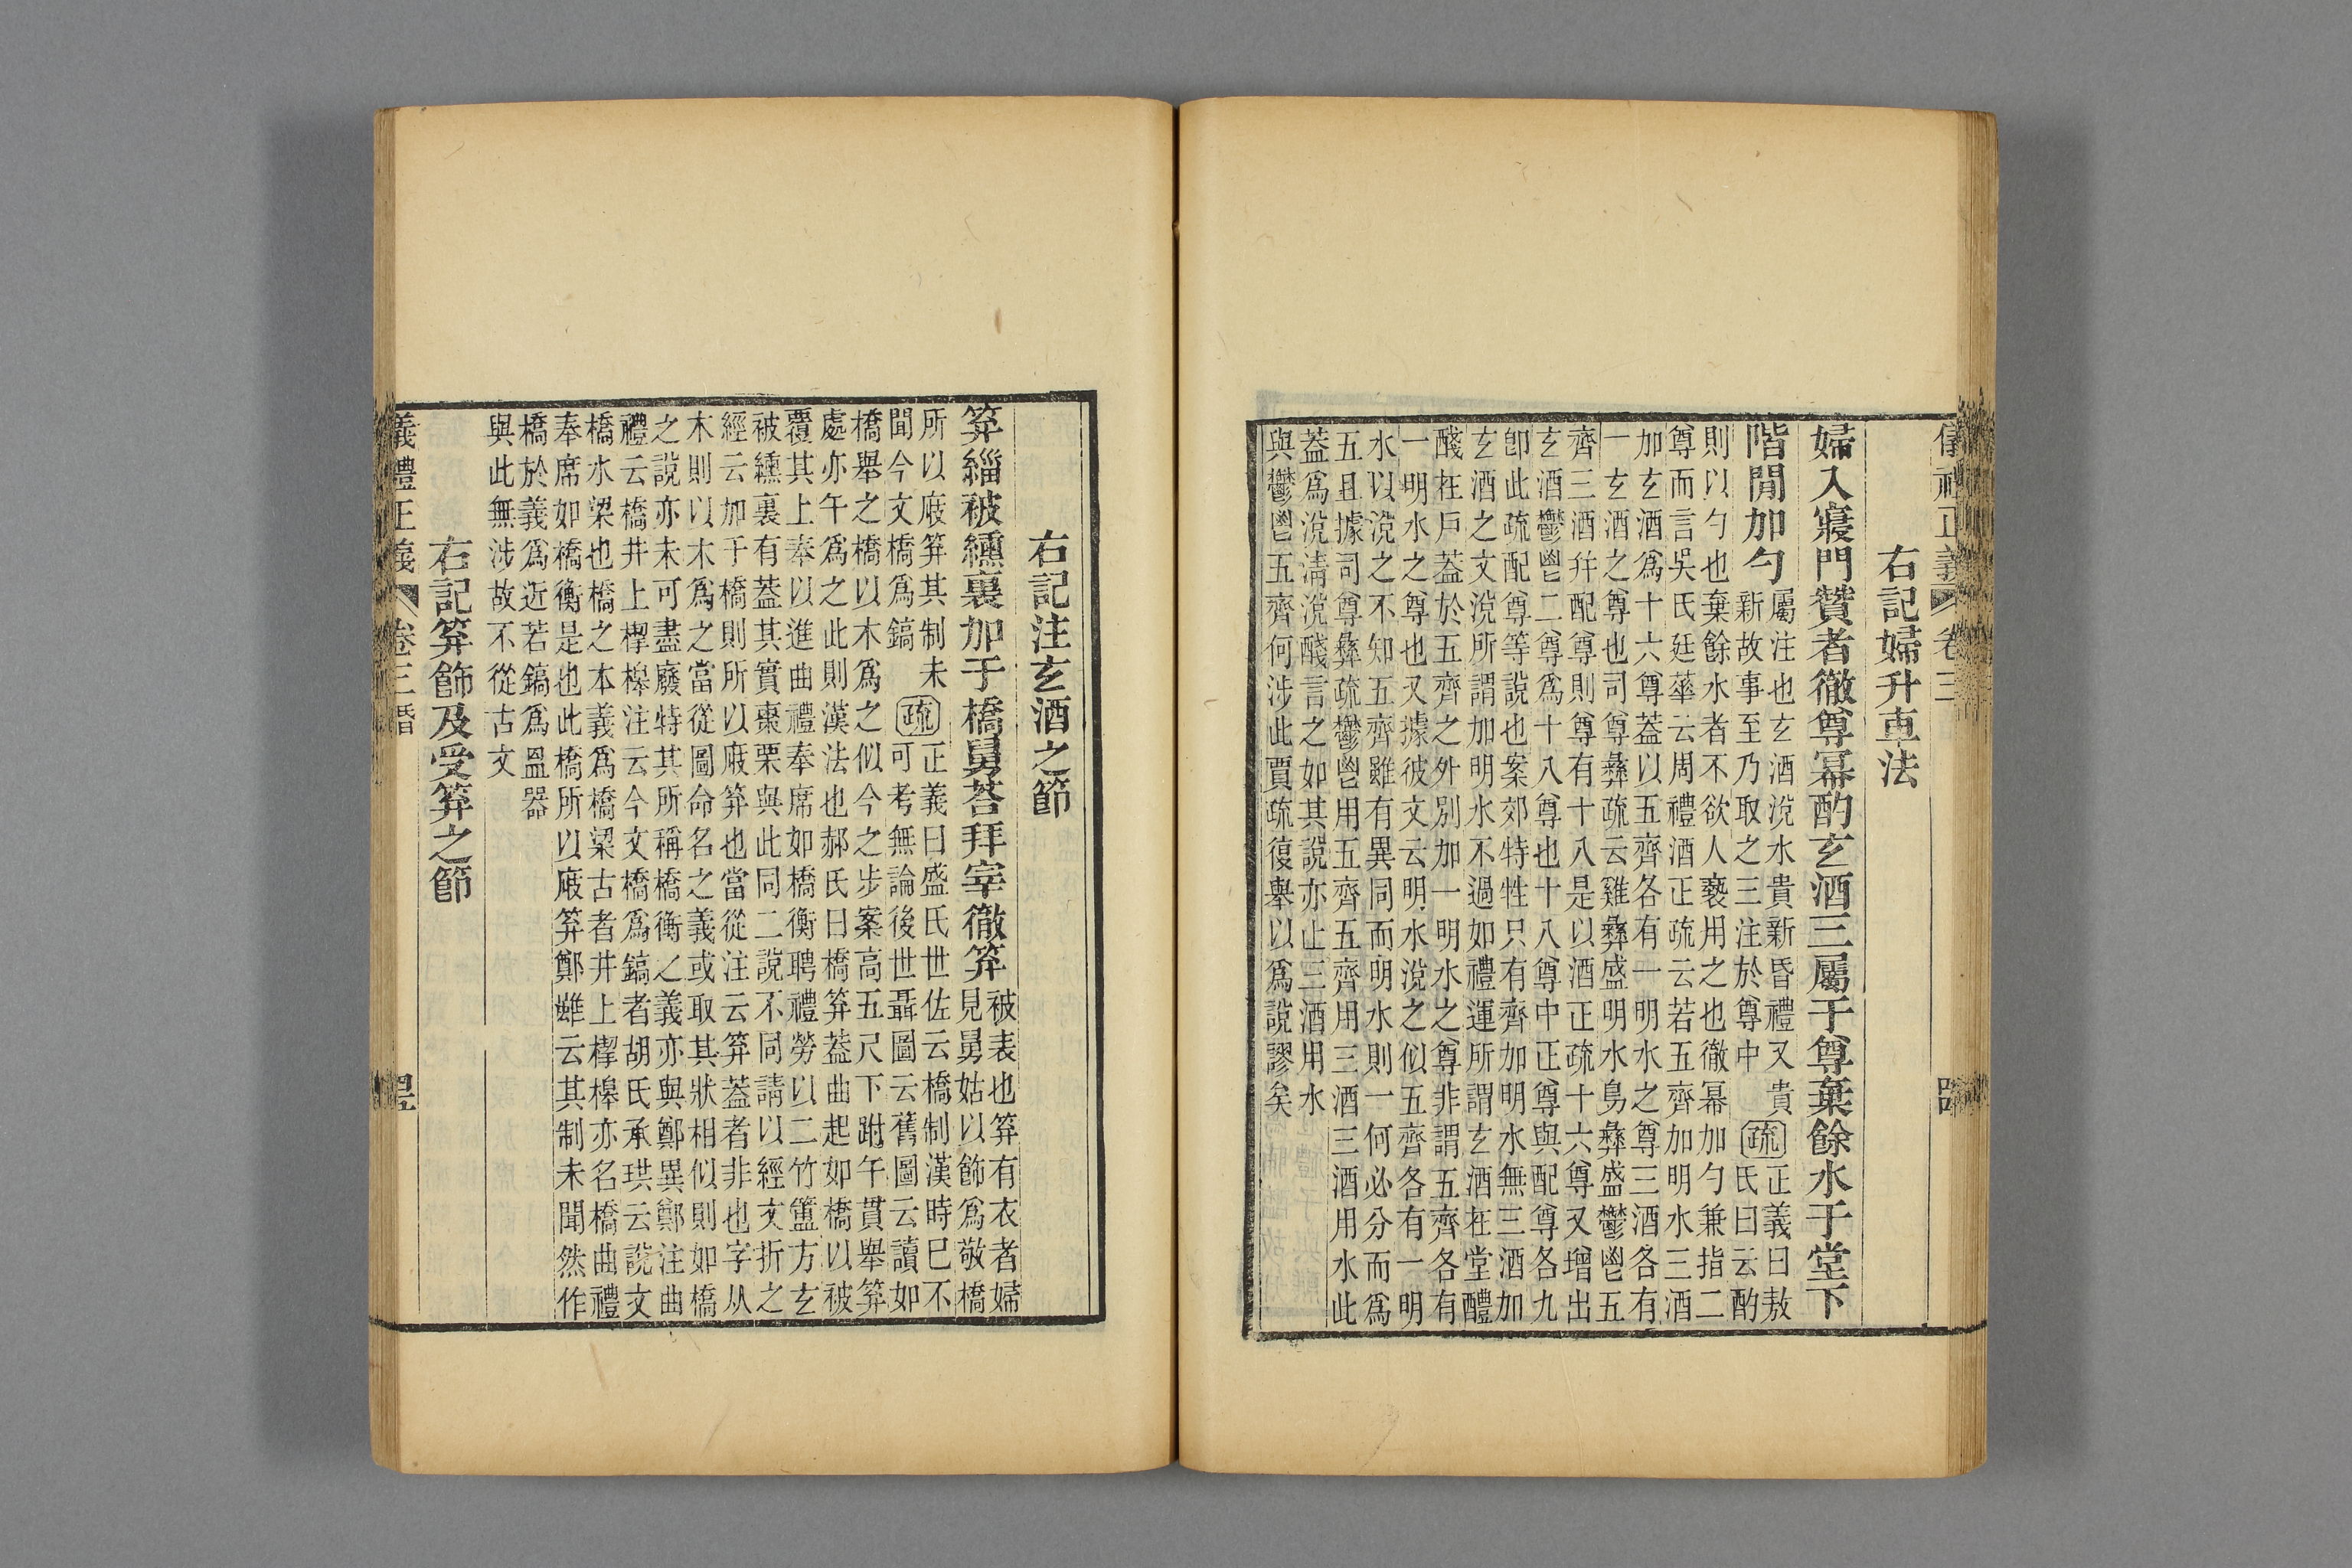 儀禮正義 卷三
右記婦升車法
婦入寢門贊者徹尊冪酌玄酒三屬于尊棄餘水于堂下
階閒加勺
屬注也玄酒涗水貴新昏禮又貴
新故事至乃取之三注於尊中
疏
正義曰敖
氏曰云酌
則以勺也棄餘水者不欲人褻用之也徹冪加勺兼指二
尊而言吳氏廷華云周禮酒正疏云若五齊加明水三酒
加玄酒爲十六尊蓋以五齊各有一明水之尊三酒各有
一玄酒之尊也司尊彝疏云雞彝盛明水鳥彝盛鬱鬯五
齊三酒幷配尊則尊有十八是以酒正疏十六尊又增出
玄酒鬱鬯二尊爲十八尊也十八尊中正尊與配尊各九
卽此疏配尊等說也案郊特牲只有齊加明水無三酒加
玄酒之文涗所謂加明水不過如禮運所謂玄酒在堂醴
醆在戶蓋於五齊之外別加一明水之尊非謂五齊各有
一明水之尊也又據彼文云明水涗之似五齊各有一明
水以涗之不知五齊雖有異同而明水則一何必分而爲
五且據司尊彝疏鬱鬯用五齊五齊用三酒三酒用水此
蓋爲涗淸涗醆言之如其說亦止三酒用水
與鬱鬯五齊何涉此賈疏復舉以爲說謬矣
右記注玄酒之節
笲緇被纁裏加于橋舅荅拜宰徹笲
被表也笲有衣者婦
見舅姑以飾爲敬橋
所以庪笲其制未
聞今文橋爲鎬
疏
正義曰盛氏世佐云橋制漢時已不
可考無論後世聶圖云舊圖云讀如
橋舉之橋以木爲之似今之步案高五尺下跗午貫舉笲
處亦午爲之此則漢法也郝氏曰橋笲蓋曲起如橋以被
覆其上奉以進曲禮奉席如橋衡聘禮勞以二竹簠方玄
被纁裏有蓋其實棗栗與此同二說不同請以經文折之
經云加于橋則所以庪笲也當從注云笲蓋者非也字从
木則以木爲之當從圖命名之義或取其狀相似則如橋
之說亦未可盡廢特其所稱橋衡之義亦與鄭異鄭注曲
禮云橋井上㮮槔注云今文橋爲鎬者胡氏承珙云說文
橋水梁也橋之本義爲橋梁古者井上㮮槔亦名橋曲禮
奉席如橋衡是也此橋所以庪笲鄭雖云其制未聞然作
橋於義爲近若鎬爲溫器
與此無涉故不從古文
右記笲飾及受笲之節
儀禮正義 卷三 昏